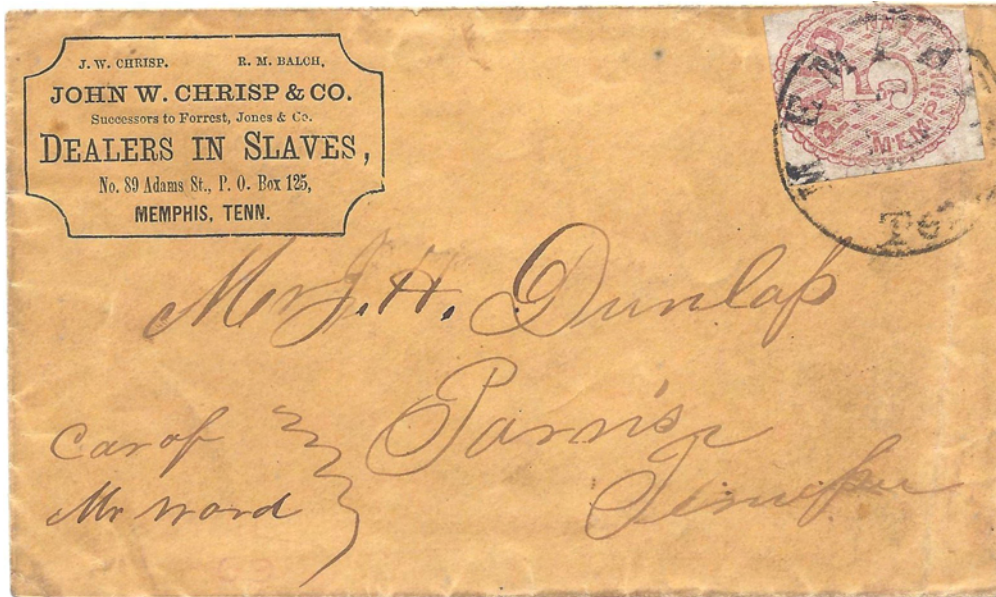 J. W. CHRISP. R. M. BALCH,
JOHN W. CHRISP & CO.
Successors to Forrest, Jones & Co.
DEALERS IN SLAVES,
No. 89 Adams St., P. O. Box 125,
MEMPHIS, TENN.
PAID
5
MEMPHIS
TENN
Mr J. H. Dunlap
Parris
Care of
Mr Ward